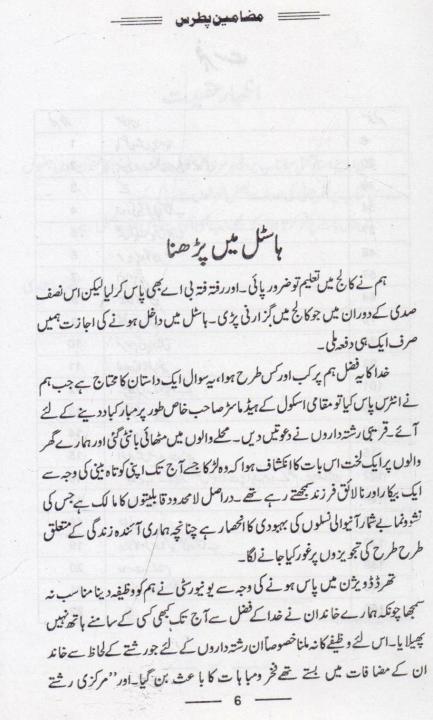 مضامین پطرس
ہاسٹل میں پڑھنا
ہم نے کالج میں تعلیم تو ضرور پائی۔ اور رفتہ رفتہ بی اے بھی پاس کر لیا لیکن اس نصف
صدی کے دوران میں جو کالج میں گزارنی پڑی۔ ہاسٹل میں داخل ہونے کی اجازت ہمیں
صرف ایک ہی دفعہ ملی۔
خدا کا یہ فضل ہم پر کب اور کس طرح ہوا، یہ سوال ایک داستان کا محتاج ہے جب ہم
نے انٹرس پاس کیا تو مقامی اسکول کے ہیڈ ماسٹر صاحب خاص طور پر مبارکباد دینے کے لئے
آئے۔ قریبی رشتہ داروں نے دعوتیں دیں۔ محلے والوں میں مٹھائی بانٹی گئی اور ہمارے گھر
والوں پر ایک لخت اس بات کا انکشاف ہوا کہ وہ لڑکا جسے آج تک اپنی کوتاہ بینی کی وجہ سے
ایک بیکار اور نالائق فرزند سمجھتے رہے تھے۔ دراصل لامحدود قابلیتوں کا مالک ہے جس کی
نشوونما پر بے شمار آنیوالی نسلوں کی بہبودی کا انحصار ہے چنانچہ ہماری آئندہ زندگی کے متعلق
طرح طرح کی تجویزوں پر غور کیا جانے لگا۔
تھرڈ ڈویژن میں پاس ہونے کی وجہ سے یونیورسٹی نے ہم کو وظیفہ دینا مناسب نہ
سمجھا چونکہ ہمارے خاندان نے خدا کے فضل سے آج تک کبھی کسی کے سامنے ہاتھ نہیں
پھیلایا۔ اس لئے وظیفے کا نہ ملنا خصوصاً ان رشتہ داروں کے لئے جو رشتے کے لحاظ سے خاند
ان کے مضافات میں بستے تھے فخر و مباہات کا باعث بن گیا۔ اور ”مرکزی رشتے
6